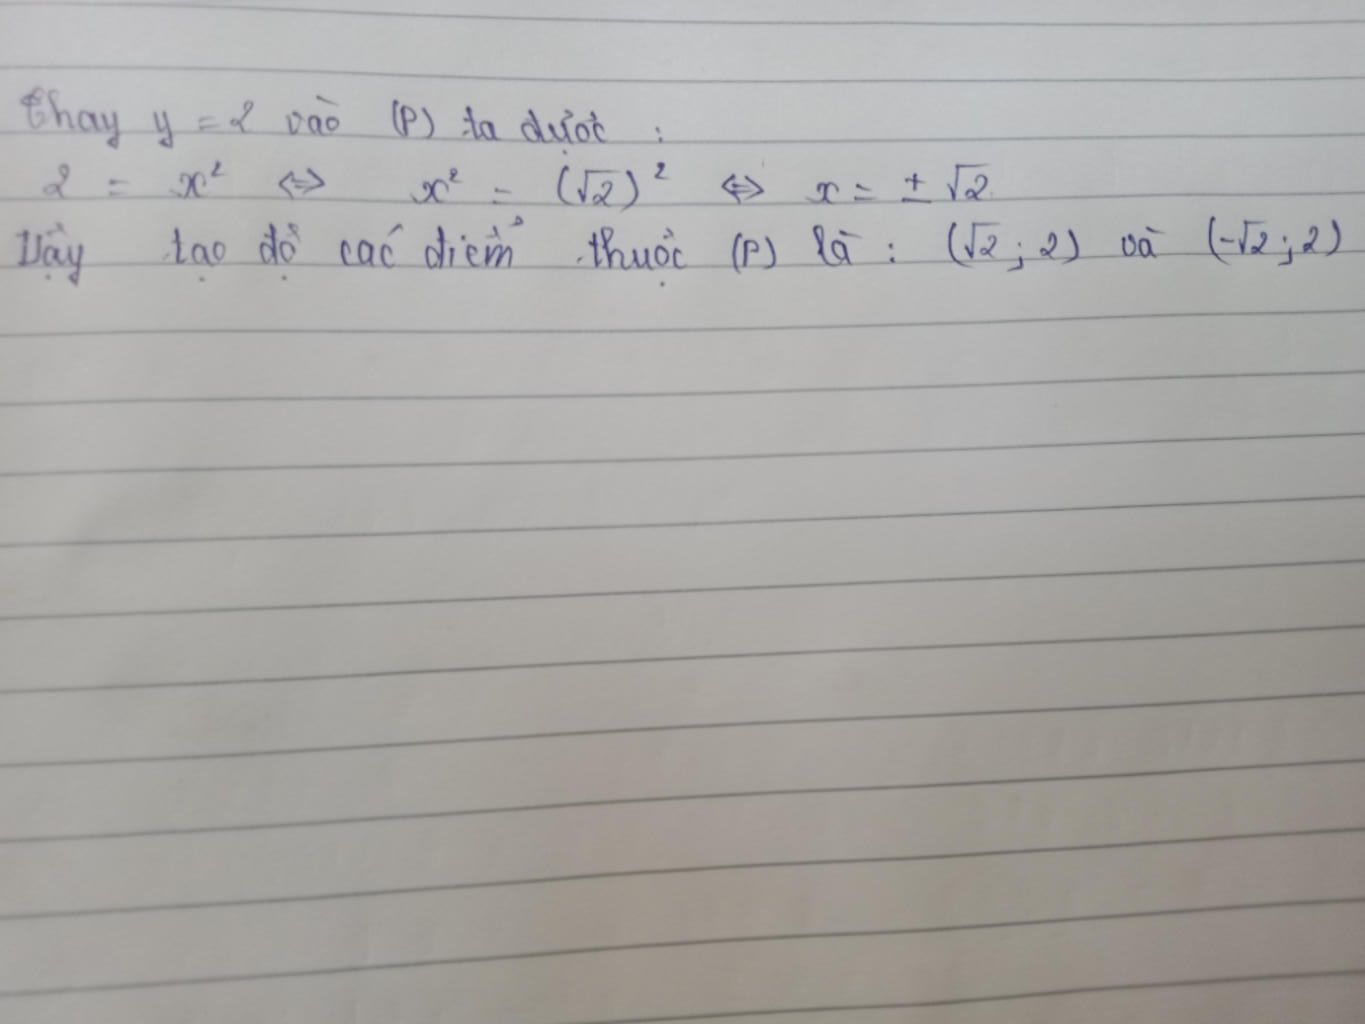 Thay y = 2 vào (P) ta được :
2 = x² ⇔ x² = (√2)² ⇔ x = ± √2
Vậy tạo độ các điểm thuộc (P) là : (√2 ; 2) và (-√2 ; 2)